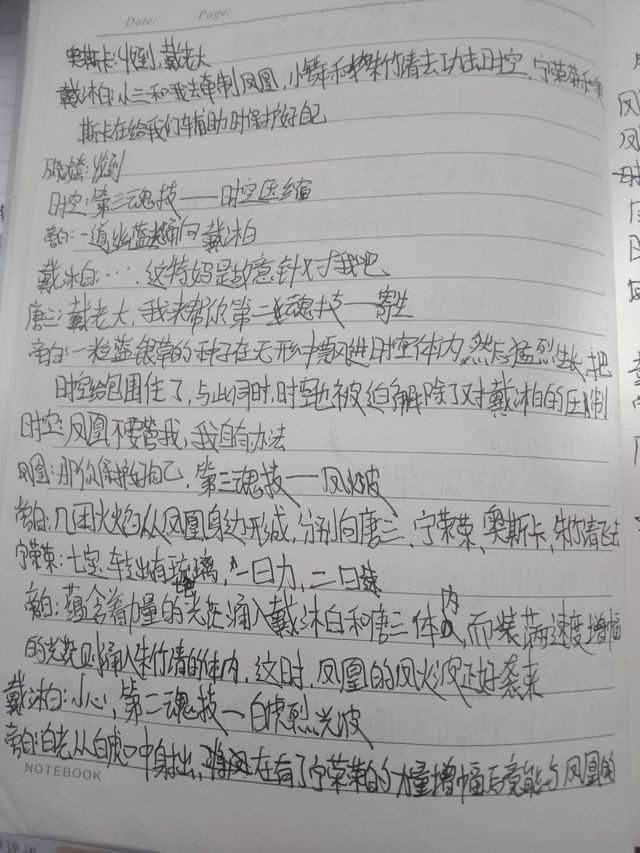 Date: Page:
奥斯卡:收到,戴老大
戴沐白:小三和我去牵制凤凰,小舞和朱竹清去攻击时空,宁荣荣和奥
斯卡在给我们辅助时保护好自己
收到
时空:第三魂技——时空压缩
旁白:一道幽蓝 向戴沐白
戴沐白:…,这特妈是故意针对我吧
唐三:戴老大,我来帮你第二魂技——寄生
旁白:一粒蓝银草的种子在无形中飘进时空体内,然后猛烈生长,把
时空给包围住了,与此同时,时空也被迫解除了对戴沐白的压制
时空:凤凰不要管我,我自有办法
凤凰:那你保护好自己,第三魂技——凤火波
旁白:几团火焰从凤凰身边形成,分别向唐三、宁荣荣、奥斯卡,朱竹清飞去
宁荣荣:七宝转出有琉璃,一曰力,二曰速
旁白:蕴含着力量的光芒涌入戴沐白和唐三体内,而装满速度增幅
的光芒则涌入朱竹清的体内,这时,凤凰的凤火波正好袭来
戴沐白:小心,第二魂技—白虎烈光波
旁白:白光从白虎口中射出,在有了宁荣荣的力量增幅后竟能与凤凰的
NOTEBOOK